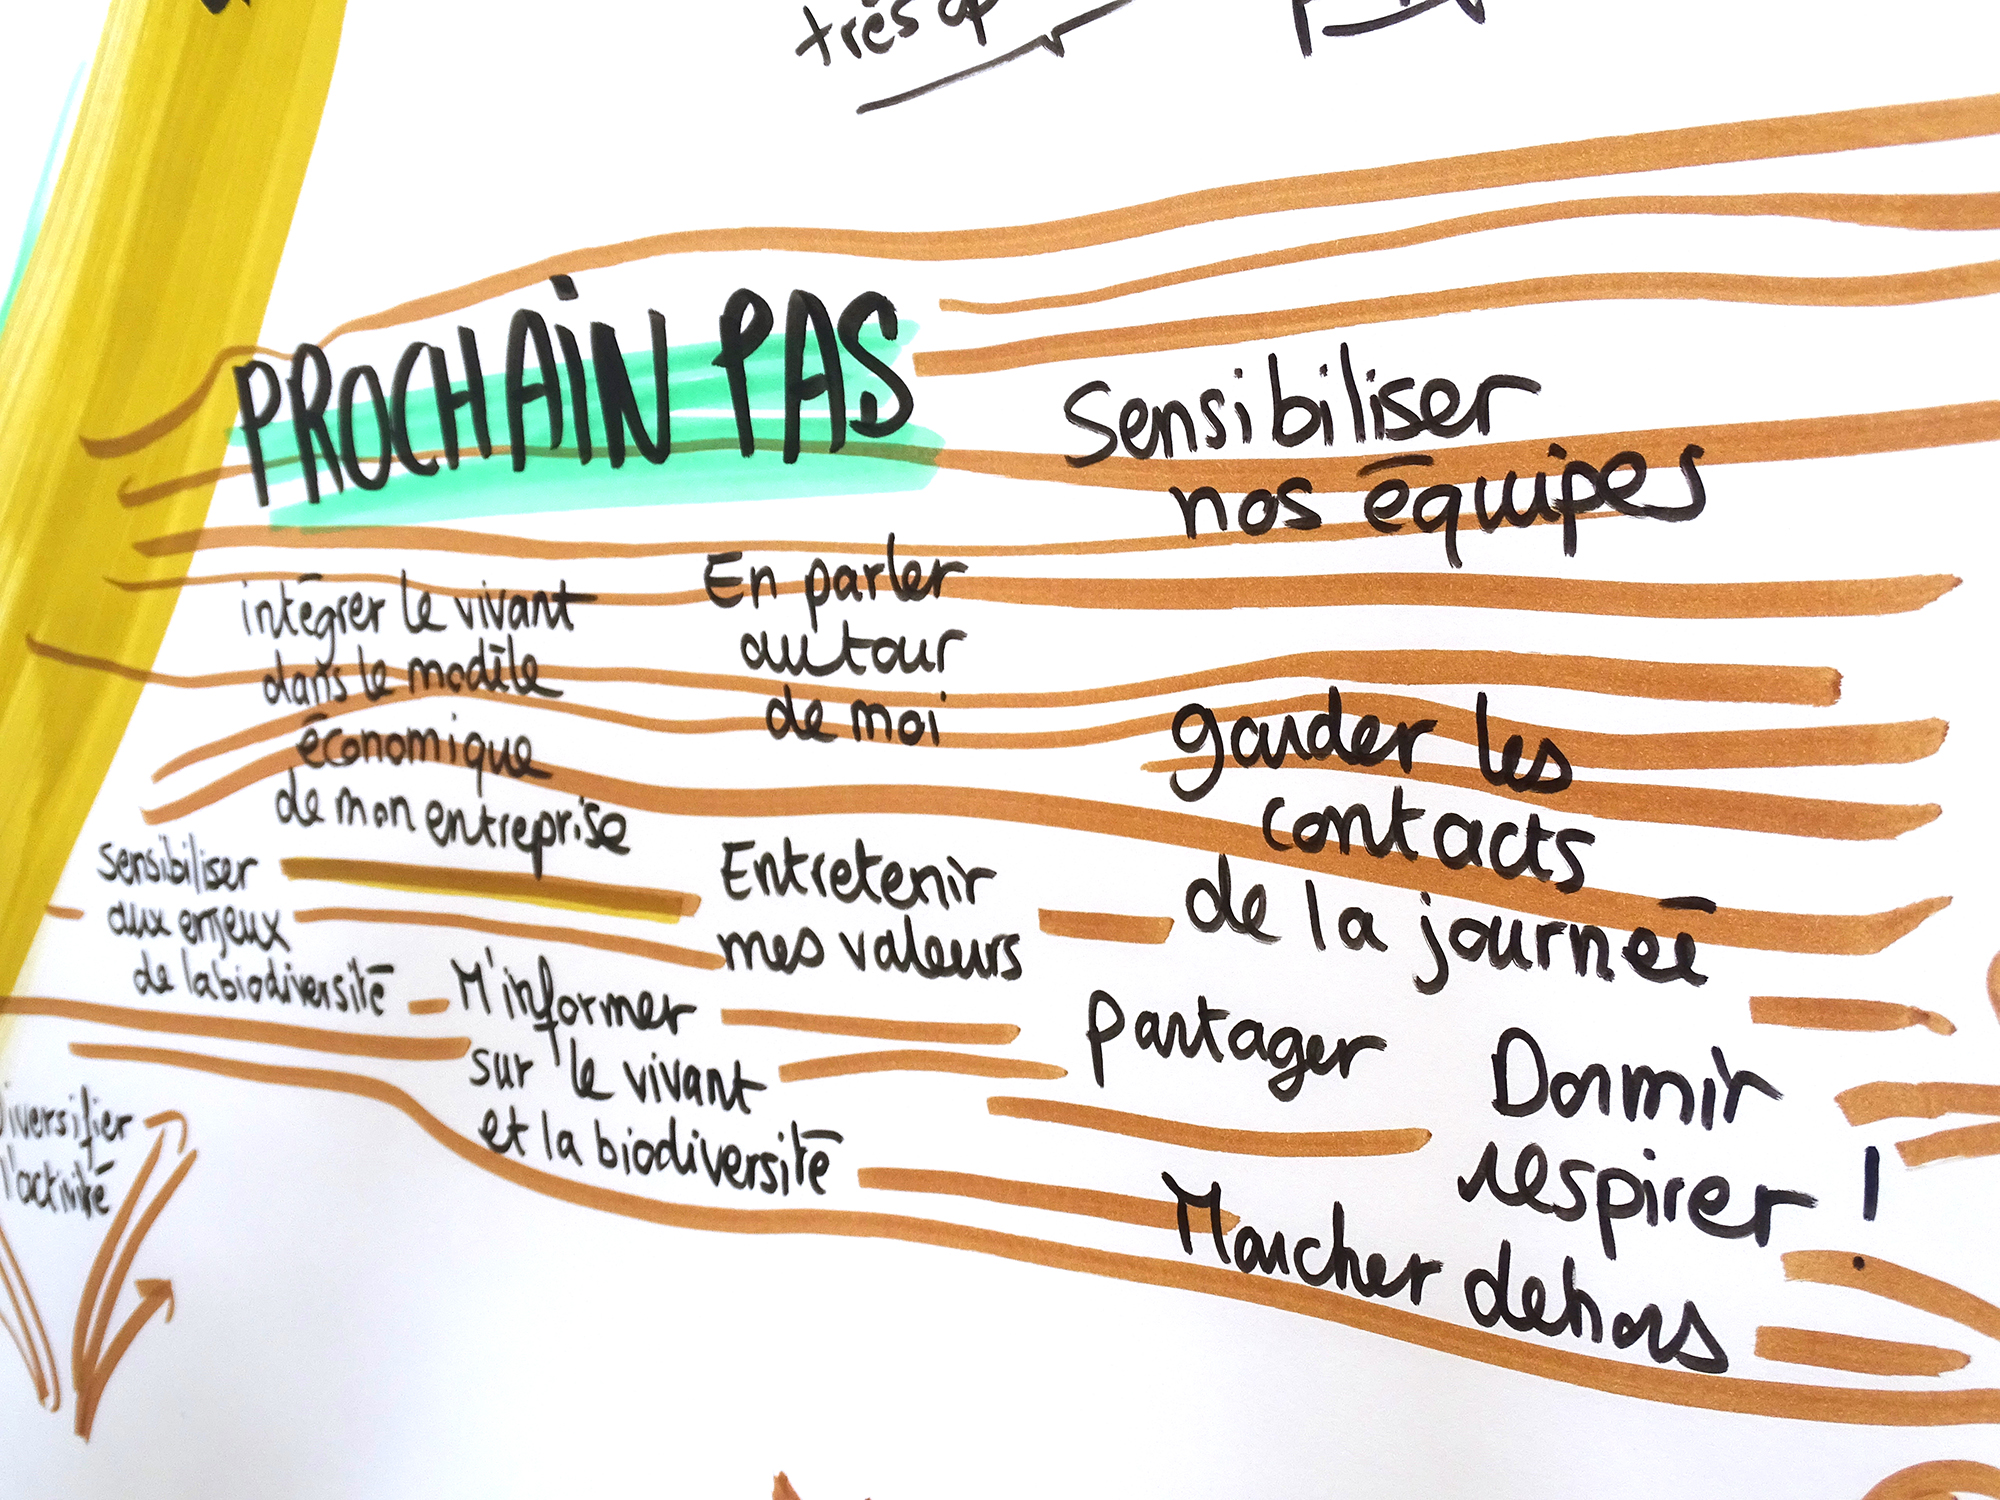 très
PROCHAIN PAS
Sensibiliser
nos équipes
intégrer le vivant
dans le modèle
économique
de mon entreprise
En parler
autour
de moi
garder les
contacts
de la journée
Sensibiliser
aux enjeux
de la biodiversité
Entretenir
mes valeurs
M'informer
sur le vivant
et la biodiversité
Partager
Dormir
respirer !
Marcher dehors
iversifier
l'activité